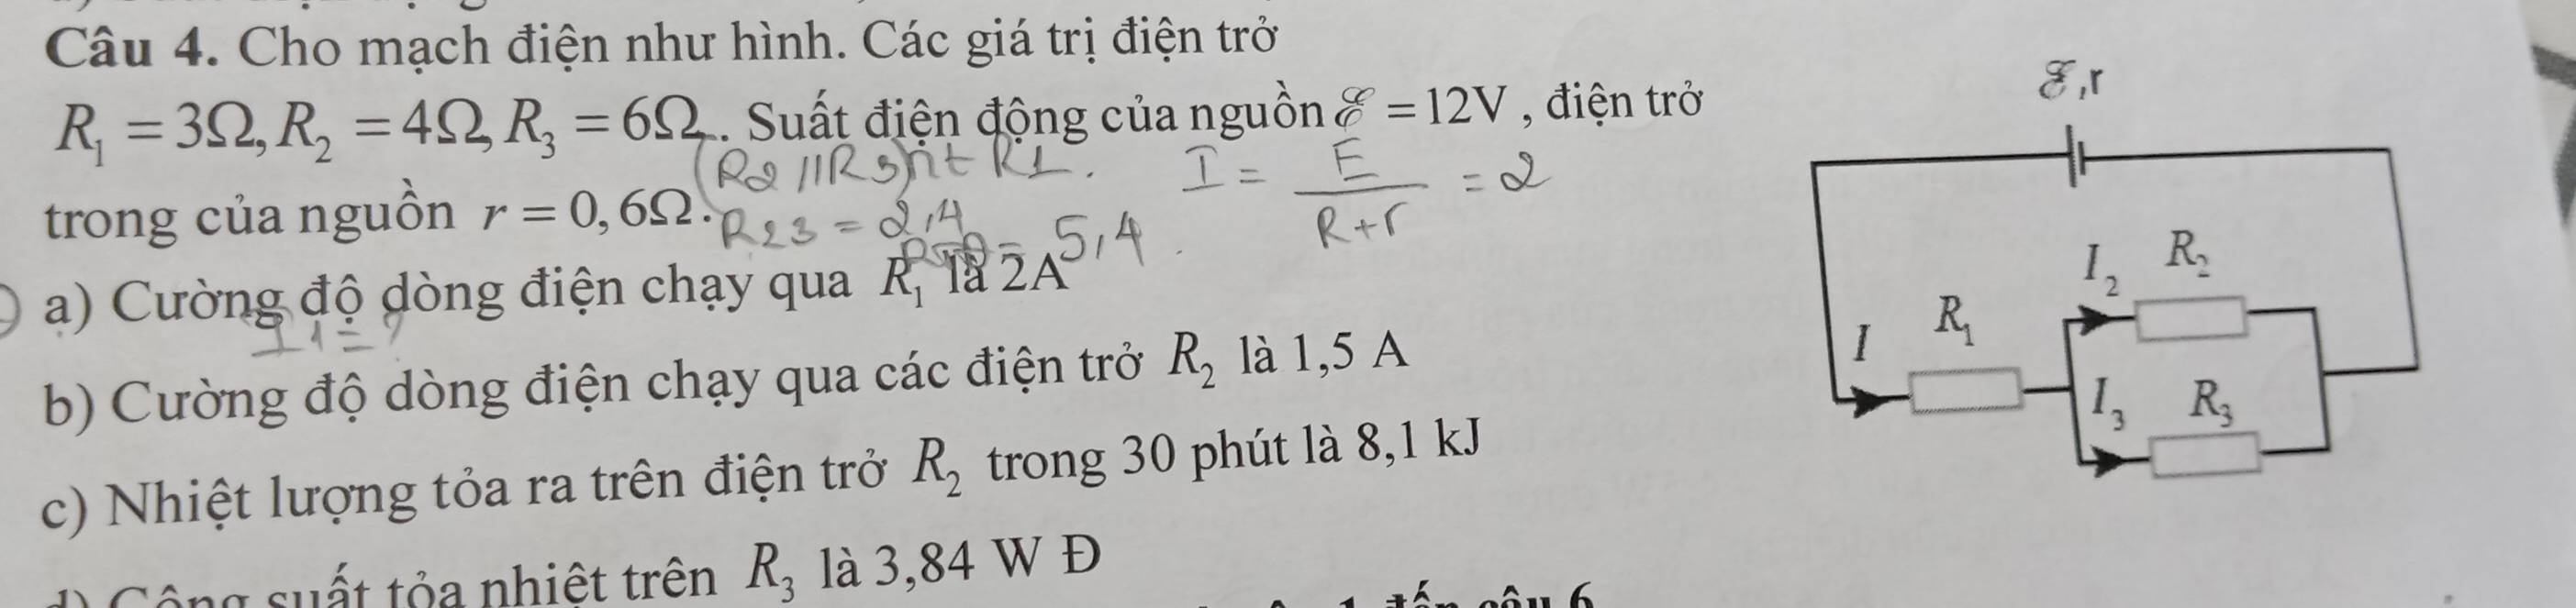 Câu 4. Cho mạch điện như hình. Các giá trị điện trở
R₁ = 3Ω, R₂ = 4Ω, R₃ = 6Ω. Suất điện động của nguồn ℰ = 12V, điện trở
(R2 // R3) nt R1.
I = E / (R+r) = 2
trong của nguồn r = 0,6Ω.
R23 = 2,4
= 5,4
a) Cường độ dòng điện chạy qua R₁ là 2A
I1 = ?
b) Cường độ dòng điện chạy qua các điện trở R₂ là 1,5 A
c) Nhiệt lượng tỏa ra trên điện trở R₂ trong 30 phút là 8,1 kJ
d) Công suất tỏa nhiệt trên R₃ là 3,84 W Đ
đến câu 6
ℰ,r
I₂ R₂
I R₁
I₃ R₃